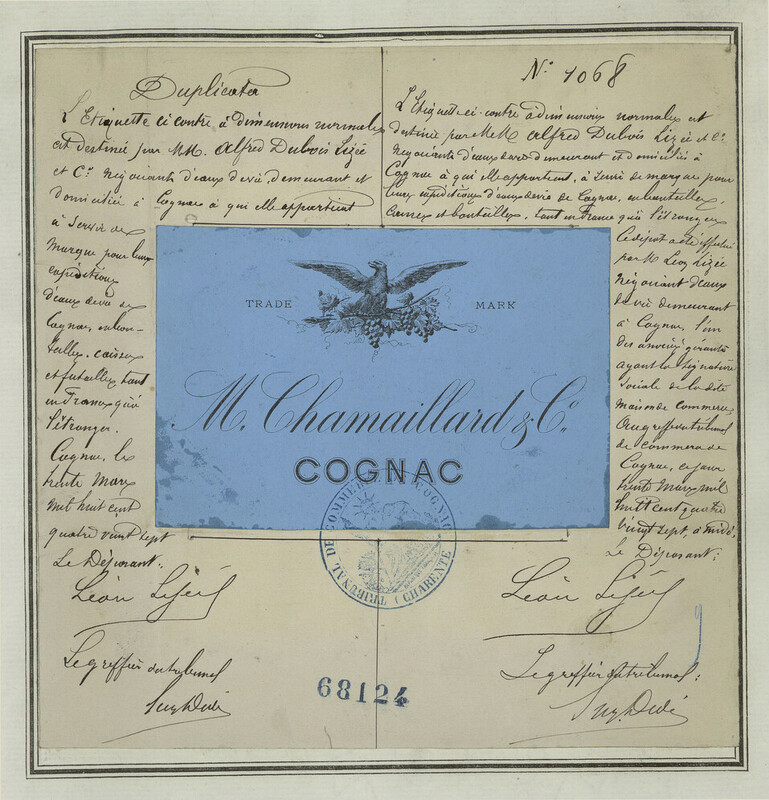 Duplicata
L'Etiquette ci contre, à dimensions normales
est destinée par MM. Alfred Dubois Lizée
et Cie négociants d'eaux de vie, demeurant et
domiciliés à Cognac à qui elle appartient
à servir de
marque pour leurs
expéditions
d'eaux de vie de
Cognac, en bou-
teilles, caisses
et futailles tant
en France qu'à
l'étranger.
Cognac, le
trente Mars
mil huit cent
quatre vingt sept
Le Déposant:
Léon Lizée
Le greffier du tribunal
N° 1068
L'Etiquette ci-contre à dimensions normales est
destinée par MM. Alfred Dubois Lizée et Cie
négociants d'eaux de vie demeurant et domiciliés à
Cognac à qui elle appartient, à servir de marque pour
leurs expéditions d'eaux de vie de Cognac, en bouteilles,
tant en France qu'à l'étranger
Ce dépôt a été effectué
par M. Léon Lizée
négociant d'eaux
de vie demeurant
à Cognac, l'un
des associés gérants
ayant la signature
sociale de la dite
maison de commerce,
au greffe du tribunal
de commerce de
Cognac, ce jour
trente Mars mil
huit cent quatre
vingt sept, à midi.
Le Déposant:
Léon Lizée
Le greffier du tribunal:
TRADE MARK
M. Chamaillard & Co.,
COGNAC
TRIBUNAL DE COMMERCE COGNAC (CHARENTE
68124